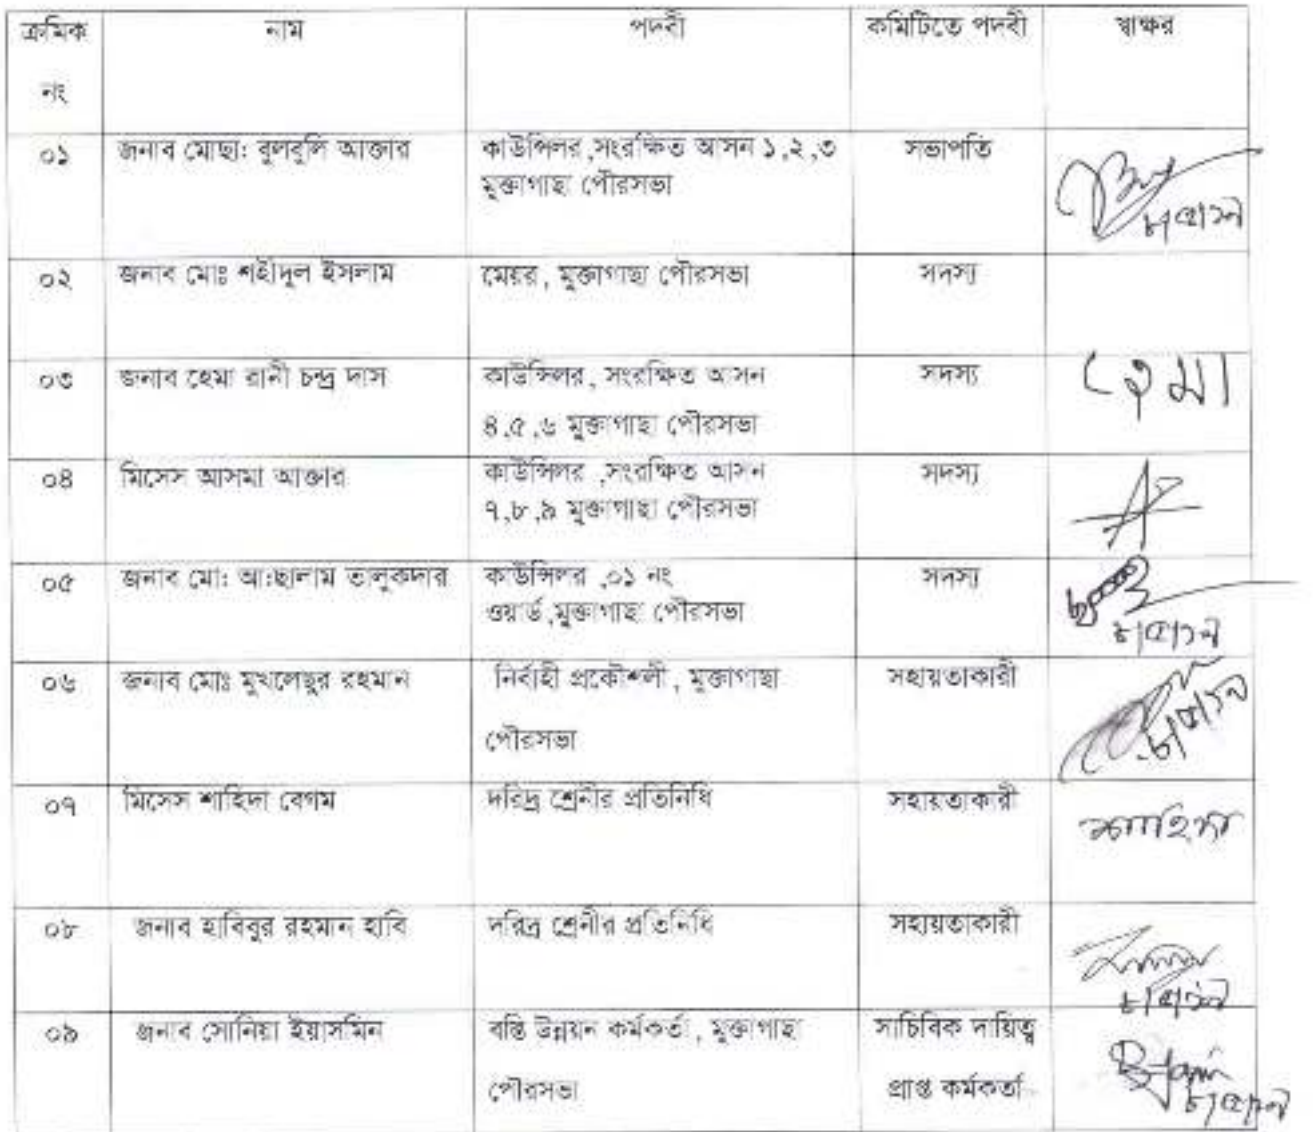 ক্রমিক নাম পদবী কমিটিতে পদবী স্বাক্ষর
নং
০১ জনাব মোছা: বুলবুলি আক্তার কাউন্সিলর,সংরক্ষিত আসন ১,২,৩ সভাপতি
মুক্তাগাছা পৌরসভা
০২ জনাব মোঃ শহীদুল ইসলাম মেয়র, মুক্তাগাছা পৌরসভা সদস্য
০৩ জনাব হেমা রানী চন্দ্র দাস কাউন্সিলর, সংরক্ষিত আসন সদস্য হেমা
৪,৫,৬ মুক্তাগাছা পৌরসভা
০৪ মিসেস আসমা আক্তার কাউন্সিলর ,সংরক্ষিত আসন সদস্য
৭,৮,৯ মুক্তাগাছা পৌরসভা
০৫ জনাব মো: আ:ছালাম তালুকদার কাউন্সিলর ,০১ নং সদস্য
ওয়ার্ড,মুক্তাগাছা পৌরসভা
০৬ জনাব মোঃ মুখলেছুর রহমান নির্বাহী প্রকৌশলী , মুক্তাগাছা সহায়তাকারী
পৌরসভা
০৭ মিসেস শাহিদা বেগম দরিদ্র শ্রেনীর প্রতিনিধি সহায়তাকারী শাহিদা
০৮ জনাব হাবিবুর রহমান হাবি দরিদ্র শ্রেনীর প্রতিনিধি সহায়তাকারী
০৯ জনাব সোনিয়া ইয়াসমিন বস্তি উন্নয়ন কর্মকর্তা , মুক্তাগাছা সাচিবিক দায়িত্ব
পৌরসভা প্রাপ্ত কর্মকর্তা